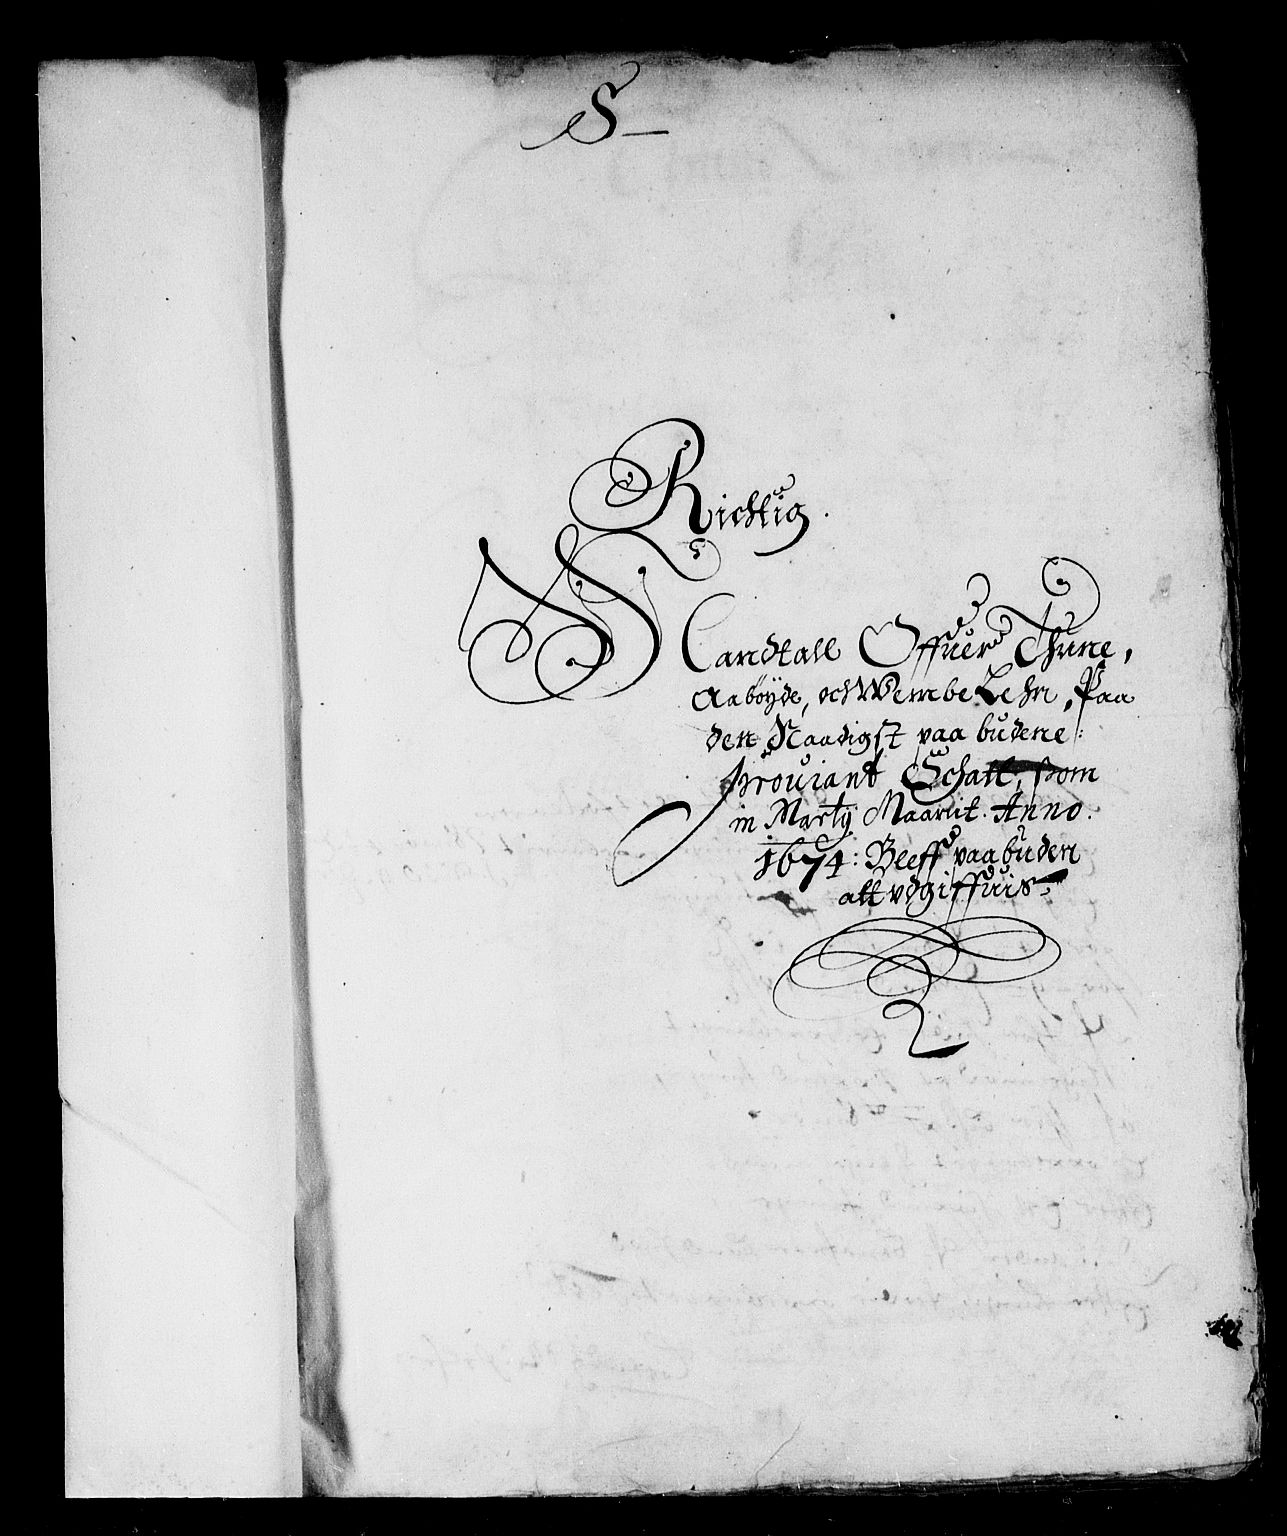 S
Richtig.
Mandtall Offuer Thune,
Aabøyde, och Wembe Lehn, Paa
den Naadigst paa budene
prouiant Schatt, som
in Marty Maanit. Anno.
1674: Bleff paabuden
att vdgiffuis